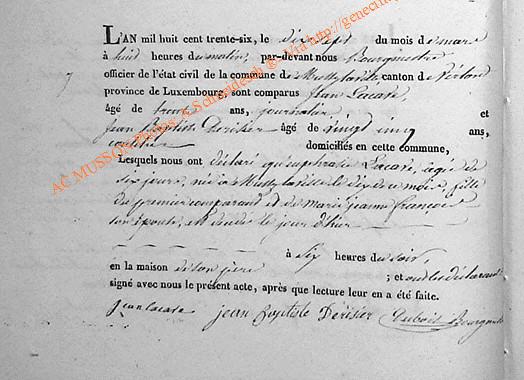 L'AN mil huit cent trente-six, le dix sept du mois de mars
à huit heures du matin, par-devant nous Bourgmestre
officier de l'état civil de la commune de Mussy la ville canton de Virton
province de Luxembourg, sont comparus Jean Lacave,
âgé de trente ans, journalier et
Jean Baptiste Derisier âgé de vingt cinq ans,
domiciliés en cette commune,
Lesquels nous ont déclaré qu'euphrasie Lacave, agée de
six jours, née à Mussy la ville le dix de ce mois, fille
du premier comparand et de marie jeanne françois
son épouse, est decedé le jour d'hier
à six heures du soir,
en la maison de son père ; et ont les déclarants
signé avec nous le présent acte, après que lecture leur en a été faite.
jean lacave jean Baptiste Dérisier Dubois Bourgmestre
AC MUSSON Photos A Schreidesch ® Via http://genecina